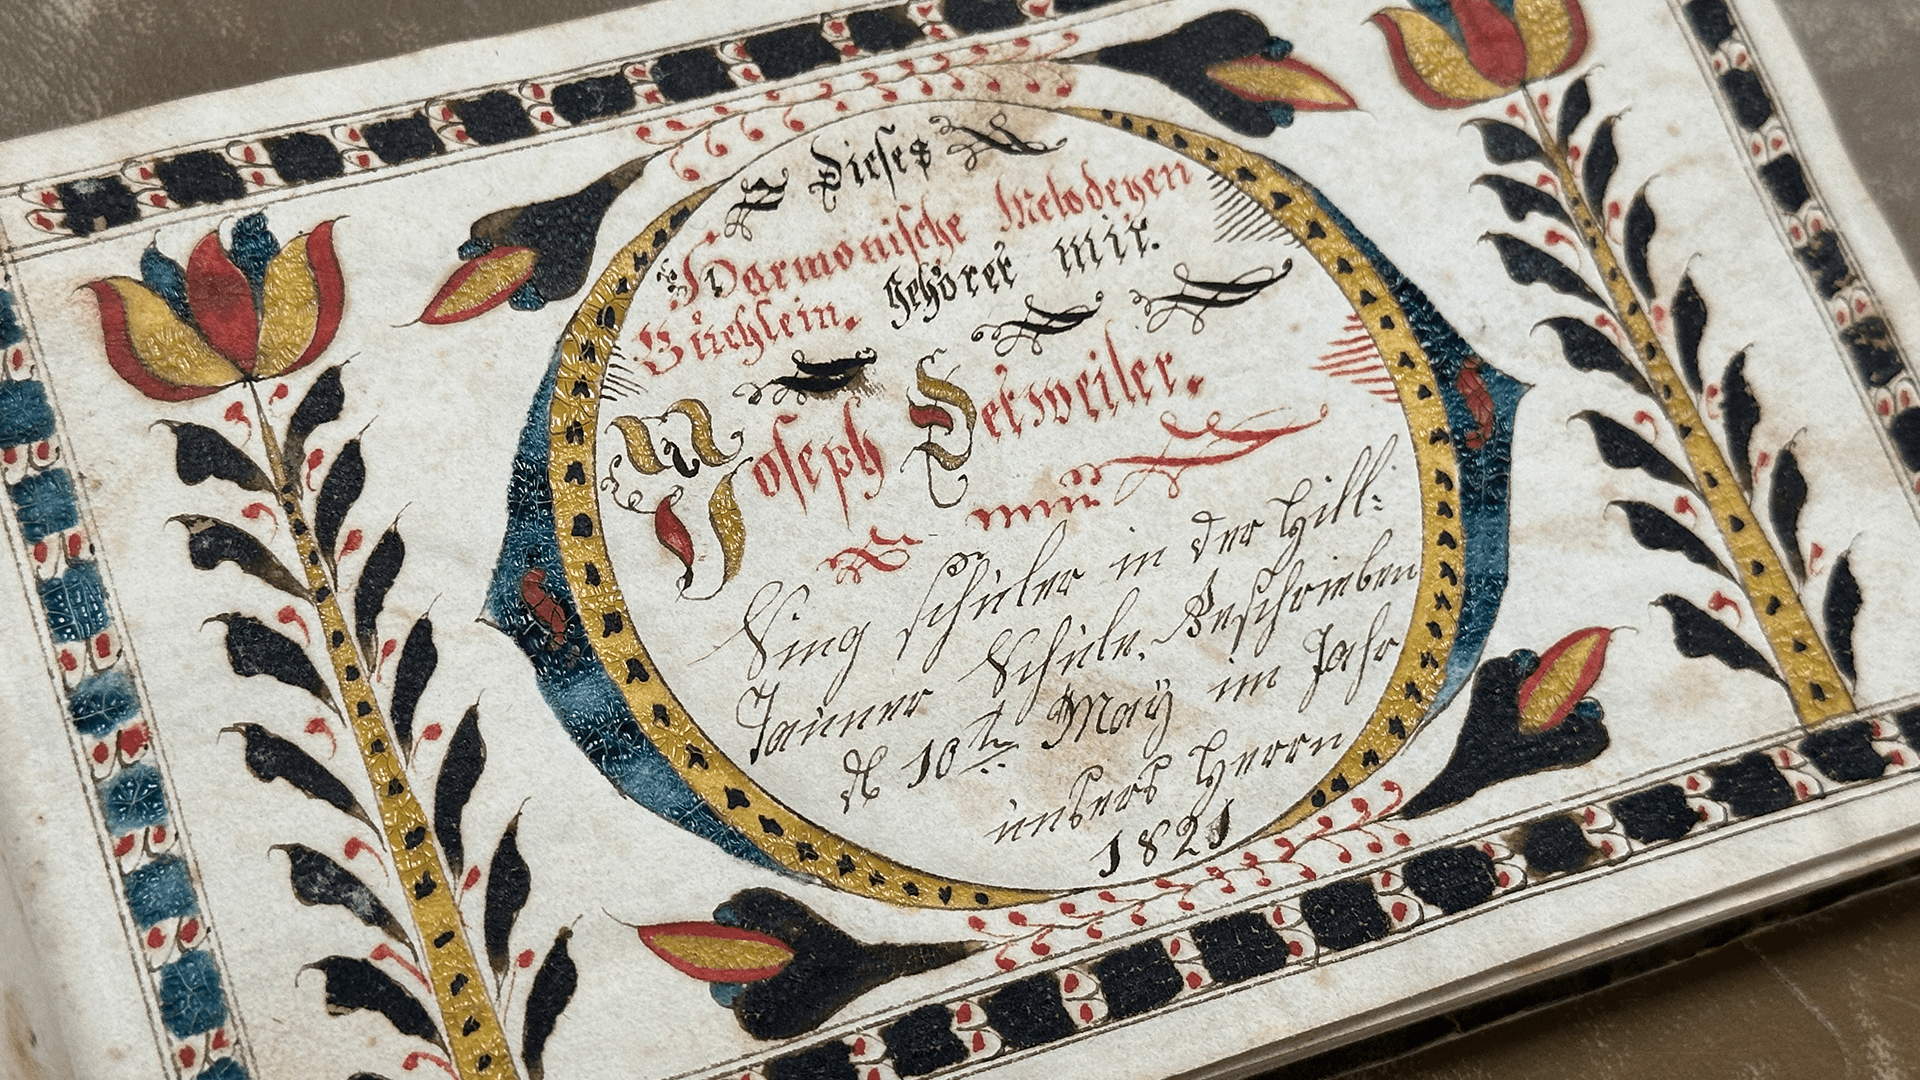 Dieses
Harmonische Melodeyen
Büchlein, gehöret mir.
Joseph Detweiler.
Sing schüler in der Hill-
Tauner Schule, Beschrieben
d 10t May im Jahr
unsers Herrn
1821